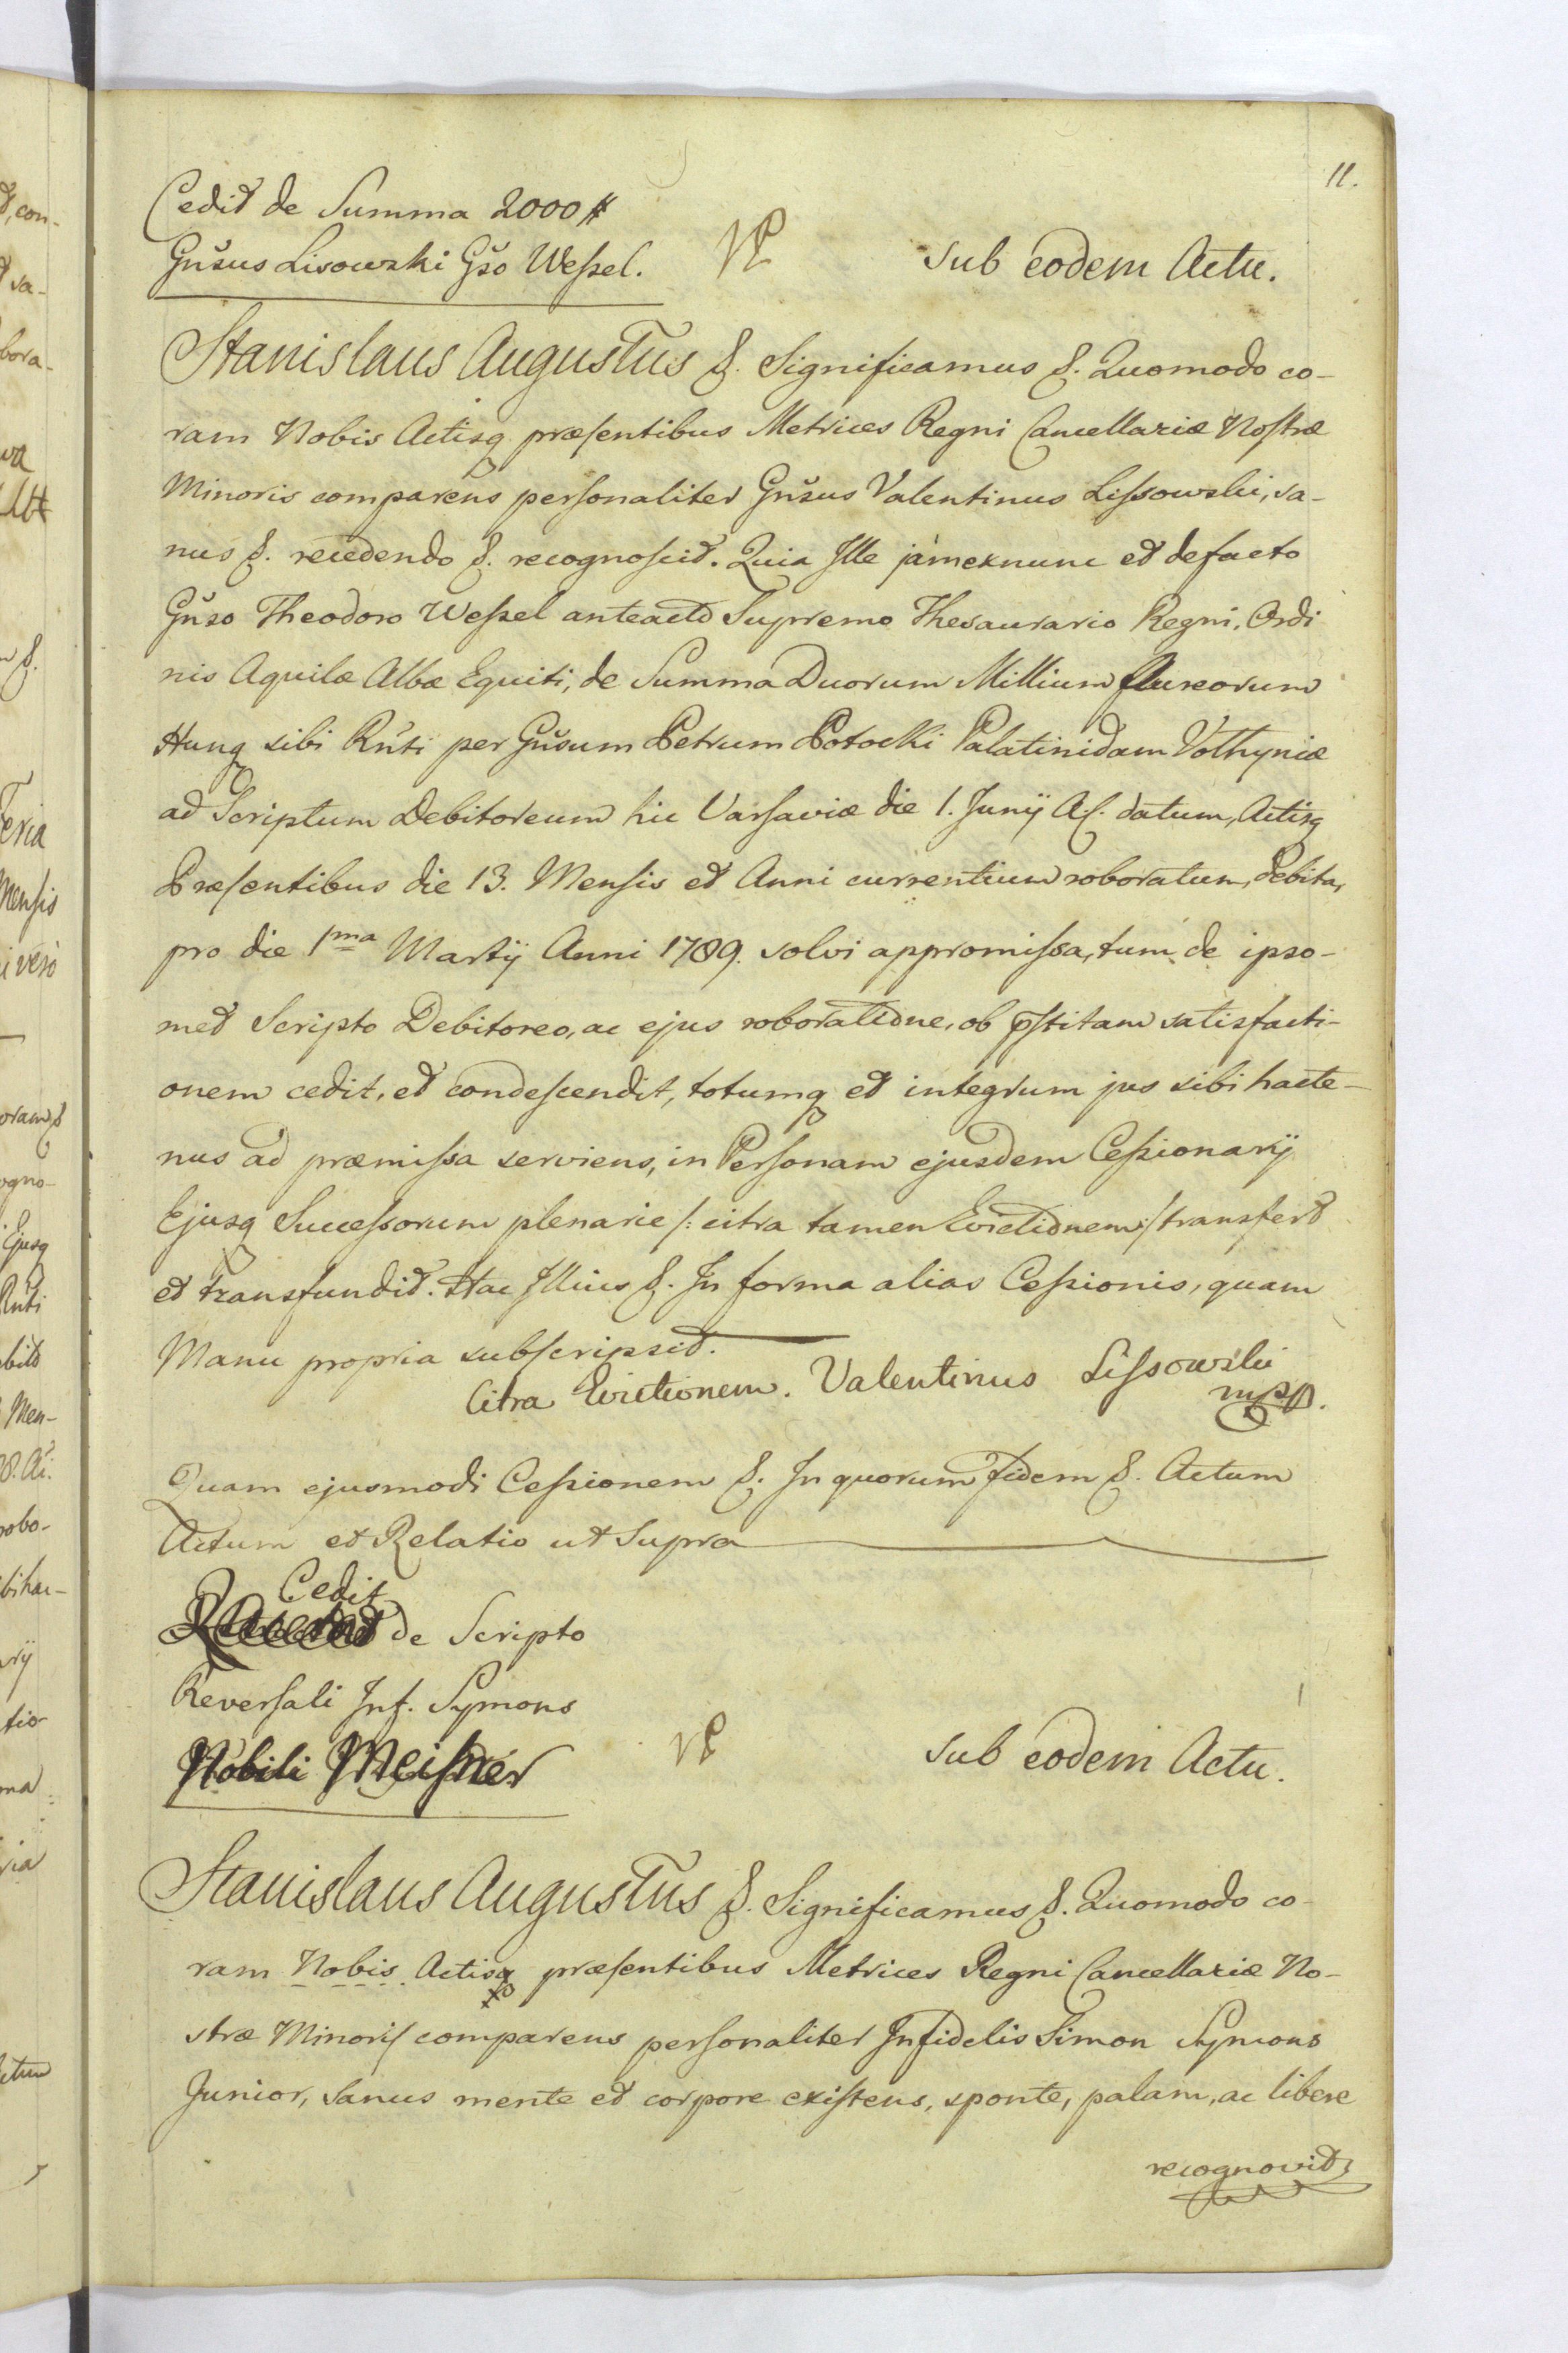 11.
Cedit de Summa 2000 #
Gnsus Lisowski Gso Weſsel.
Sub eodem Actu.
Stanislaus Augustus &. Significamus &. Quomodo co-
ram Nobis Actisq præſentibus Metrices Regni Cancellariæ Noſtræ
Minoris comparens perſonaliter Gnsus Valentinus Liſsowski, sa-
nus &. recedendo &. recognoſcit. Quia Ille jamexnunc et defacto
Gnso Theodoro Weſsel anteacto Supremo Thesaurario Regni, Ordi
nis Aquilæ Albæ Equiti, de Summa Duorum Millium Aureorum
Hung sibi Rnti per Gnsum Petrum Potocki Palatinidam Volhyniæ
ad Scriptum Debitoreum hic Varſaviæ die 1. Junÿ A. c. datum, Actisq
Præſentibus die 13. Menſis et Anni currentium roboratum, debita,
pro die 1ma Martÿ Anni 1789. solvi appromiſsa, tum de ipso-
met Scripto Debitoreo, ac ejus roboratione, ob pſtitam satisfacti-
onem cedit, et condeſcendit, totumq et integrum jus sibi hacte-
nus ad præmiſsa serviens, in Perſonam ejusdem Ceſsionarÿ
Ejusq Succeſsorum plenarie /: citra tamen Evictionem :/ transfert
et transfundit. Hac Illius &. In forma alias Ceſsionis, quam
Manu propria subſcripsit.
Citra Evictionem. Valentinus Liſsowski
mpp.
Quam ejusmodi Ceſsionem &. In quorum fidem &. Actum
Actum et Relatio ut Supra
Cedit
de Scripto
Reverſali Inf. Symons
Nobili Meiſner
Sub eodem Actu.
Stanislaus Augustus &. Significamus &. Quomodo co-
ram Nobis Actisq præſentibus Metrices Regni Cancellariæ No-
stræ Minoriſ comparens perſonaliter Infidelis Simon Symons
Junior, Sanus mente et corpore exiſtens, sponte, palam, ac libere
recognovit,